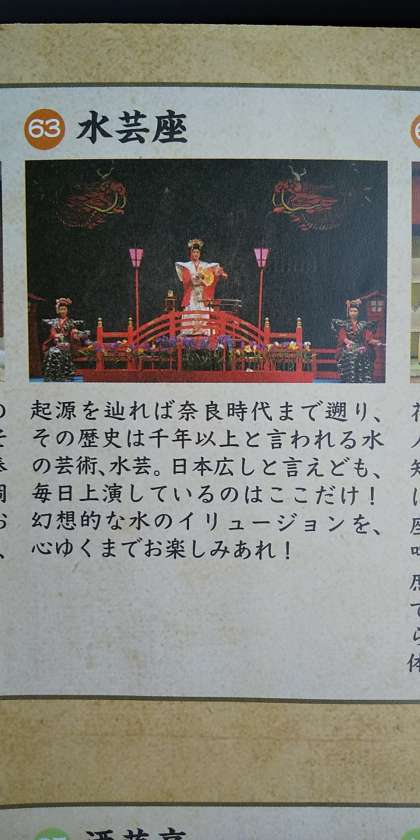 63 水芸座
起源を辿れば奈良時代まで遡り、
その歴史は千年以上と言われる水
の芸術、水芸。日本広しと言えども、
毎日上演しているのはここだけ！
幻想的な水のイリュージョンを、
心ゆくまでお楽しみあれ！